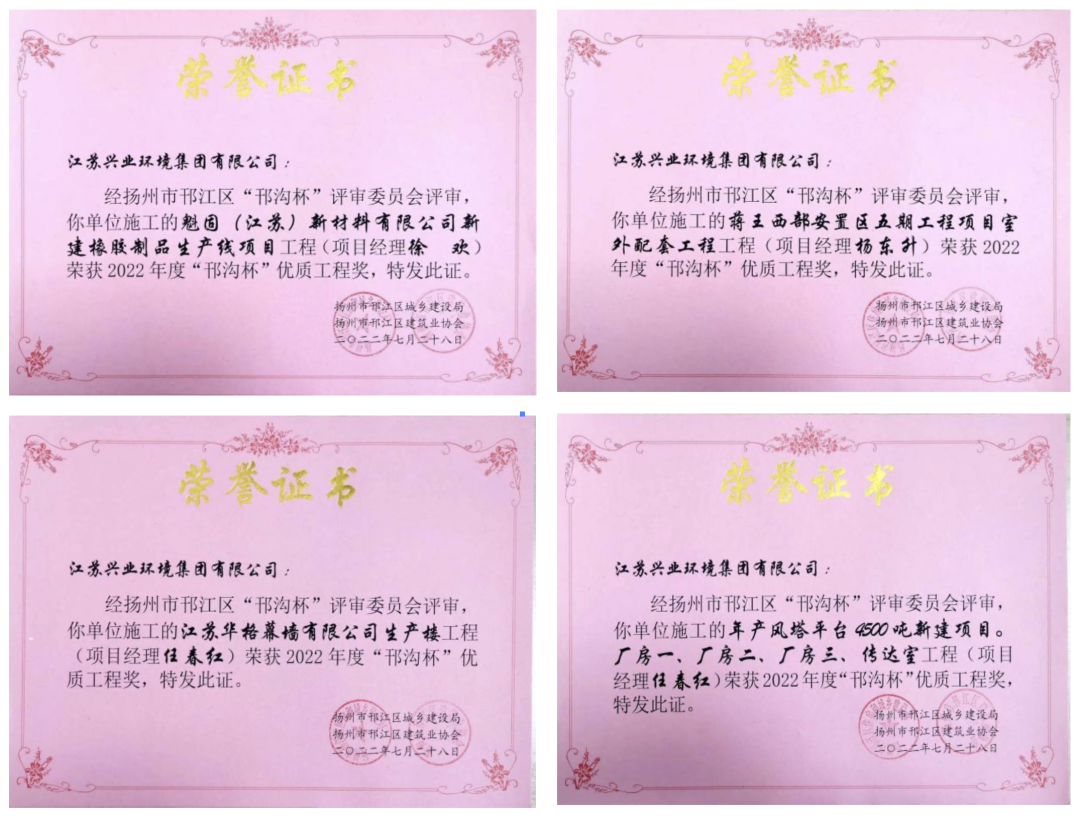 荣誉证书
江苏兴业环境集团有限公司：
经扬州市邗江区“邗沟杯”评审委员会评审，
你单位施工的魁固（江苏）新材料有限公司新
建橡胶制品生产线项目工程（项目经理徐 欢）
荣获2022年度“邗沟杯”优质工程奖，特发此证。
扬州市邗江区城乡建设局
扬州市邗江区建筑业协会
二〇二二年七月二十八日
荣誉证书
江苏兴业环境集团有限公司：
经扬州市邗江区“邗沟杯”评审委员会评审，
你单位施工的蒋王西部安置区五期工程项目室
外配套工程工程（项目经理杨东升）荣获2022
年度“邗沟杯”优质工程奖，特发此证。
扬州市邗江区城乡建设局
扬州市邗江区建筑业协会
二〇二二年七月二十八日
荣誉证书
江苏兴业环境集团有限公司：
经扬州市邗江区“邗沟杯”评审委员会评审，
你单位施工的江苏华格幕墙有限公司生产楼工程
（项目经理任春红）荣获2022年度“邗沟杯”优
质工程奖，特发此证。
扬州市邗江区城乡建设局
扬州市邗江区建筑业协会
二〇二二年七月二十八日
荣誉证书
江苏兴业环境集团有限公司：
经扬州市邗江区“邗沟杯”评审委员会评审，
你单位施工的年产风塔平台4500吨新建项目。
厂房一、厂房二、厂房三、传达室工程（项目
经理任春红）荣获2022年度“邗沟杯”优质工程奖，
特发此证。
扬州市邗江区城乡建设局
扬州市邗江区建筑业协会
二〇二二年七月二十八日